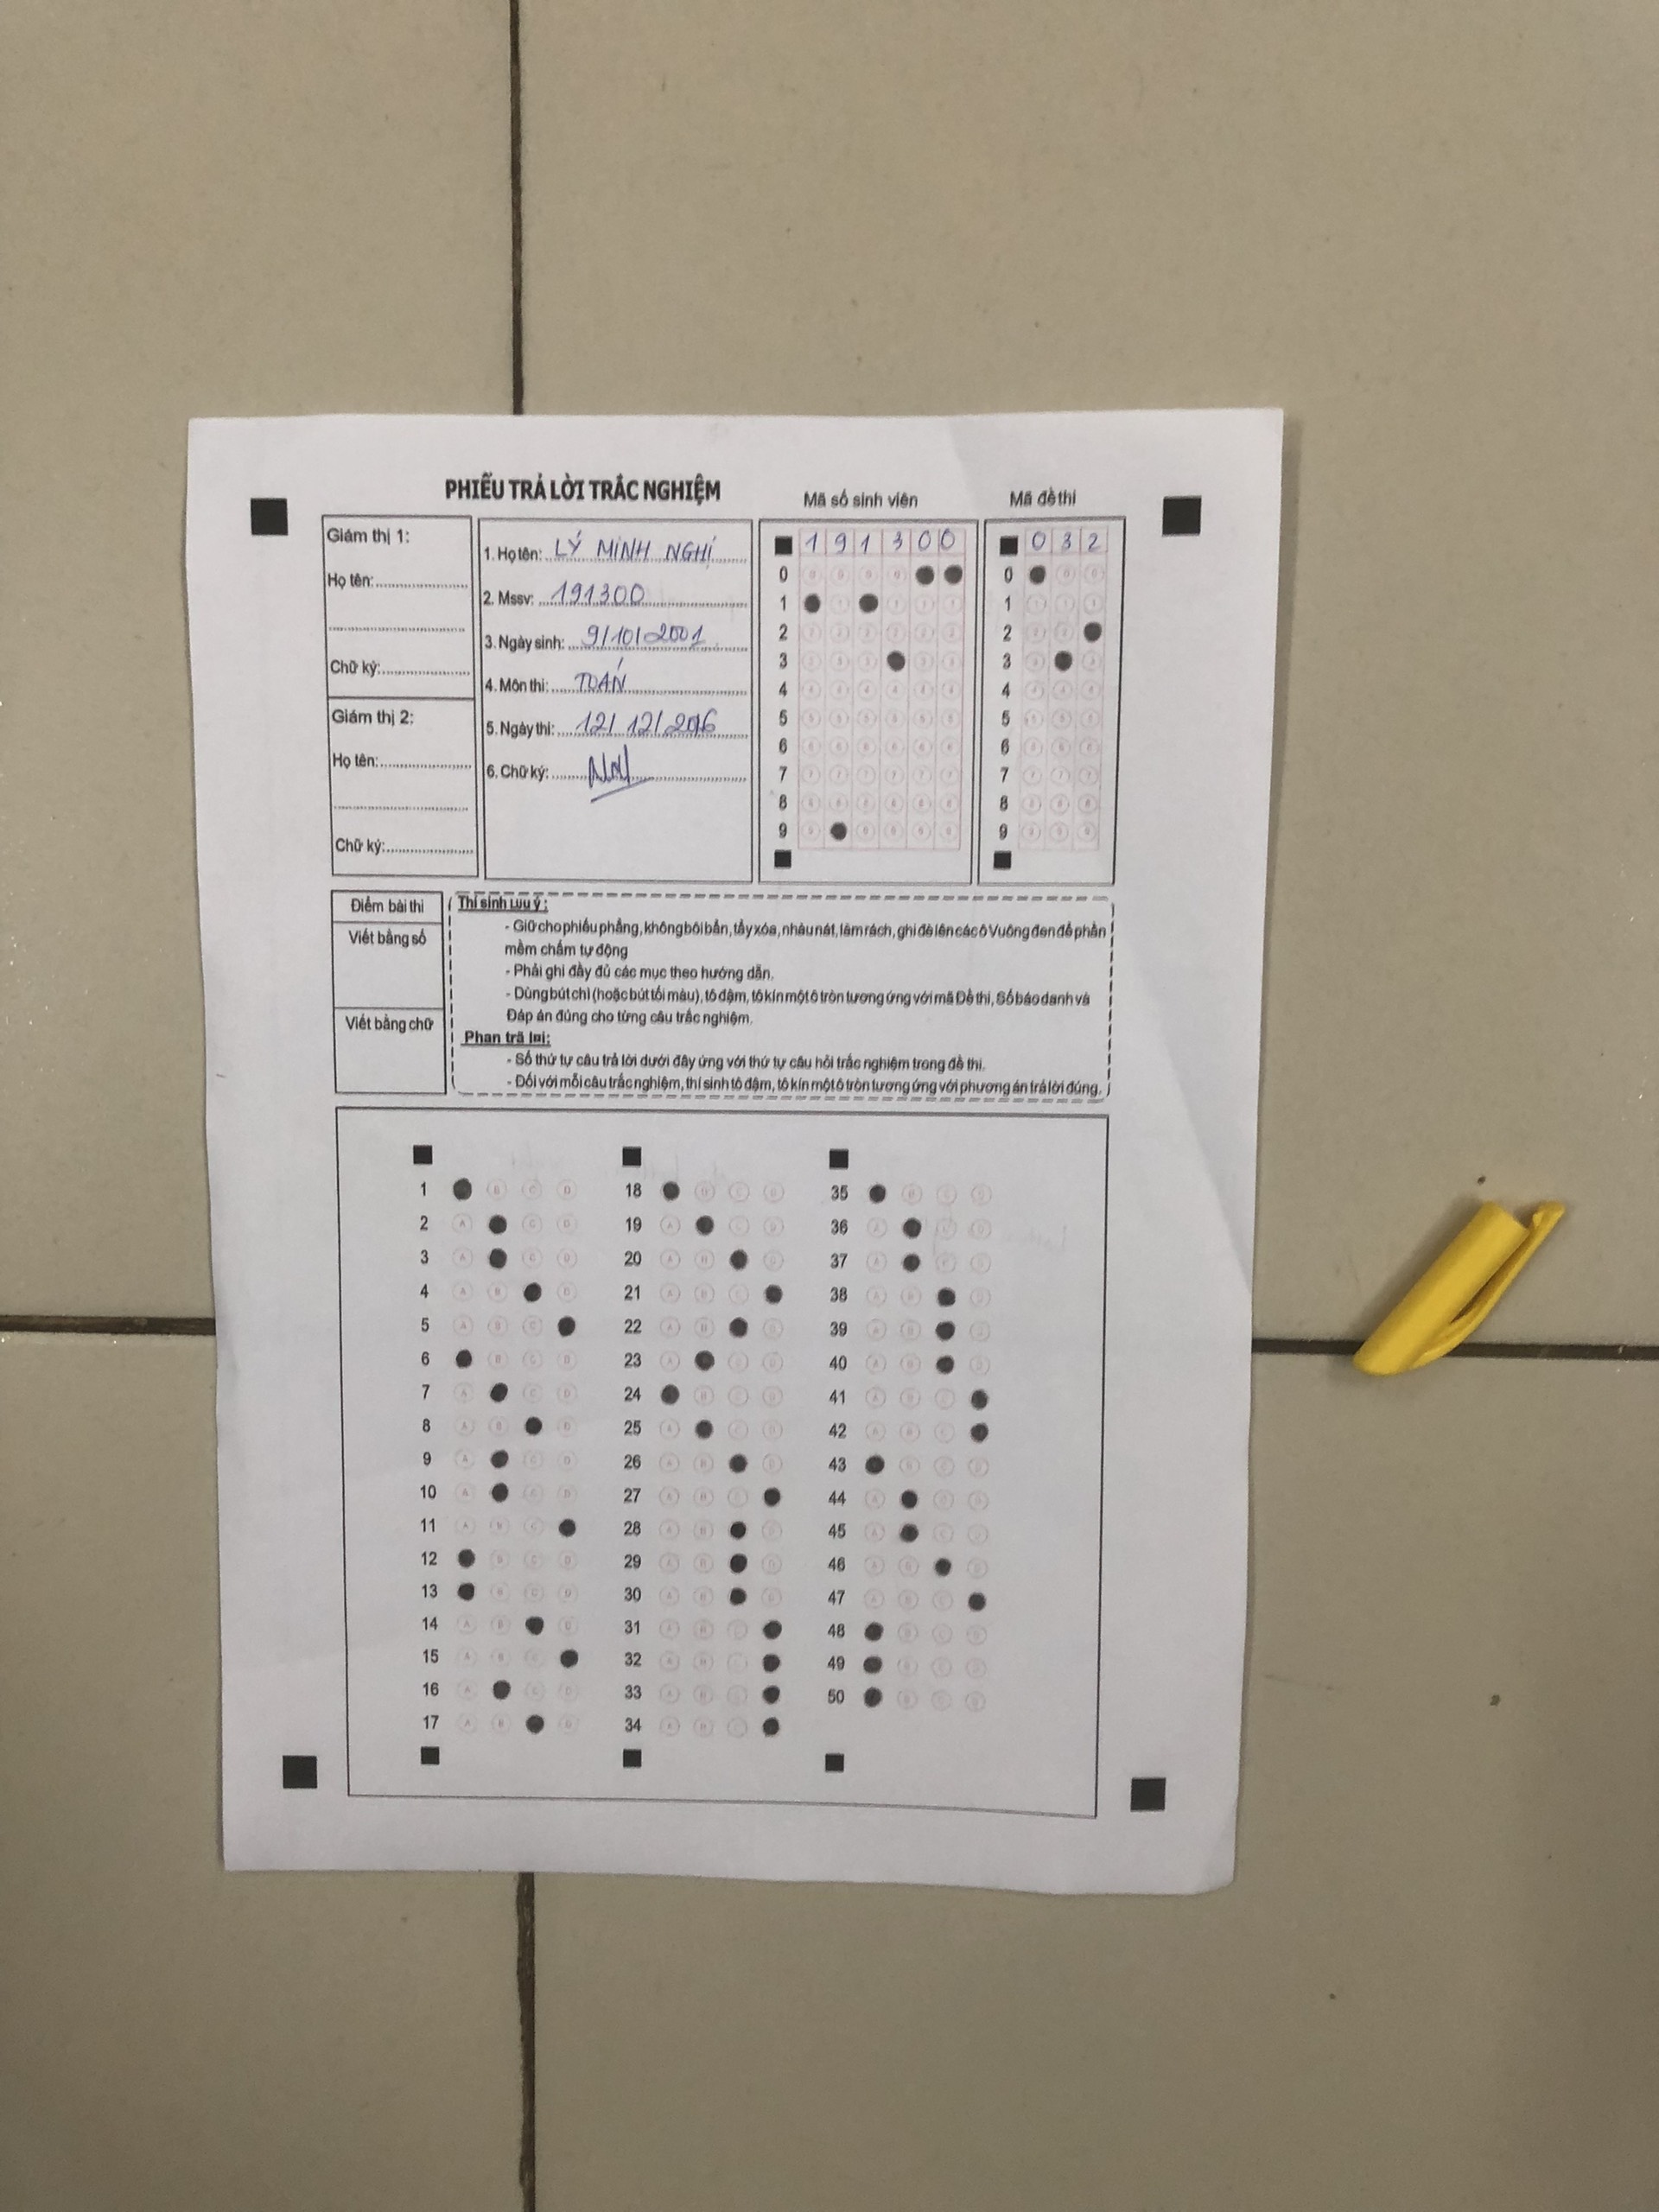 PHIẾU TRẢ LỜI TRẮC NGHIỆM
Mã số sinh viên
Mã đề thi
Giám thị 1:
Họ tên:
Chữ ký:
Giám thị 2:
Họ tên:
Chữ ký:
1. Họ tên: LÝ MINH NGHI
2. Mssv: 191300
3. Ngày sinh: 9/10/2001
4. Môn thi: TOÁN
5. Ngày thi: 12/12/2016
6. Chữ ký:
1 9 1 3 0 0
0
1
2
3
4
5
6
7
8
9
0 3 2
0
1
2
3
4
5
6
7
8
9
Điểm bài thi
Viết bằng số
Viết bằng chữ
Thí sinh lưu ý:
- Giữ cho phiếu phẳng, không bôi bẩn, tẩy xóa, nhàu nát, làm rách, ghi đè lên các ô Vuông đen để phần
mềm chấm tự động
- Phải ghi đầy đủ các mục theo hướng dẫn.
- Dùng bút chì (hoặc bút tối màu), tô đậm, tô kín một ô tròn tương ứng với mã Đề thi, Số báo danh và
Đáp án đúng cho từng câu trắc nghiệm.
Phan trã lại:
- Số thứ tự câu trả lời dưới đây ứng với thứ tự câu hỏi trắc nghiệm trong đề thi.
- Đối với mỗi câu trắc nghiệm, thí sinh tô đậm, tô kín một ô tròn tương ứng với phương án trả lời đúng.
1
2
3
4
5
6
7
8
9
10
11
12
13
14
15
16
17
18
19
20
21
22
23
24
25
26
27
28
29
30
31
32
33
34
35
36
37
38
39
40
41
42
43
44
45
46
47
48
49
50